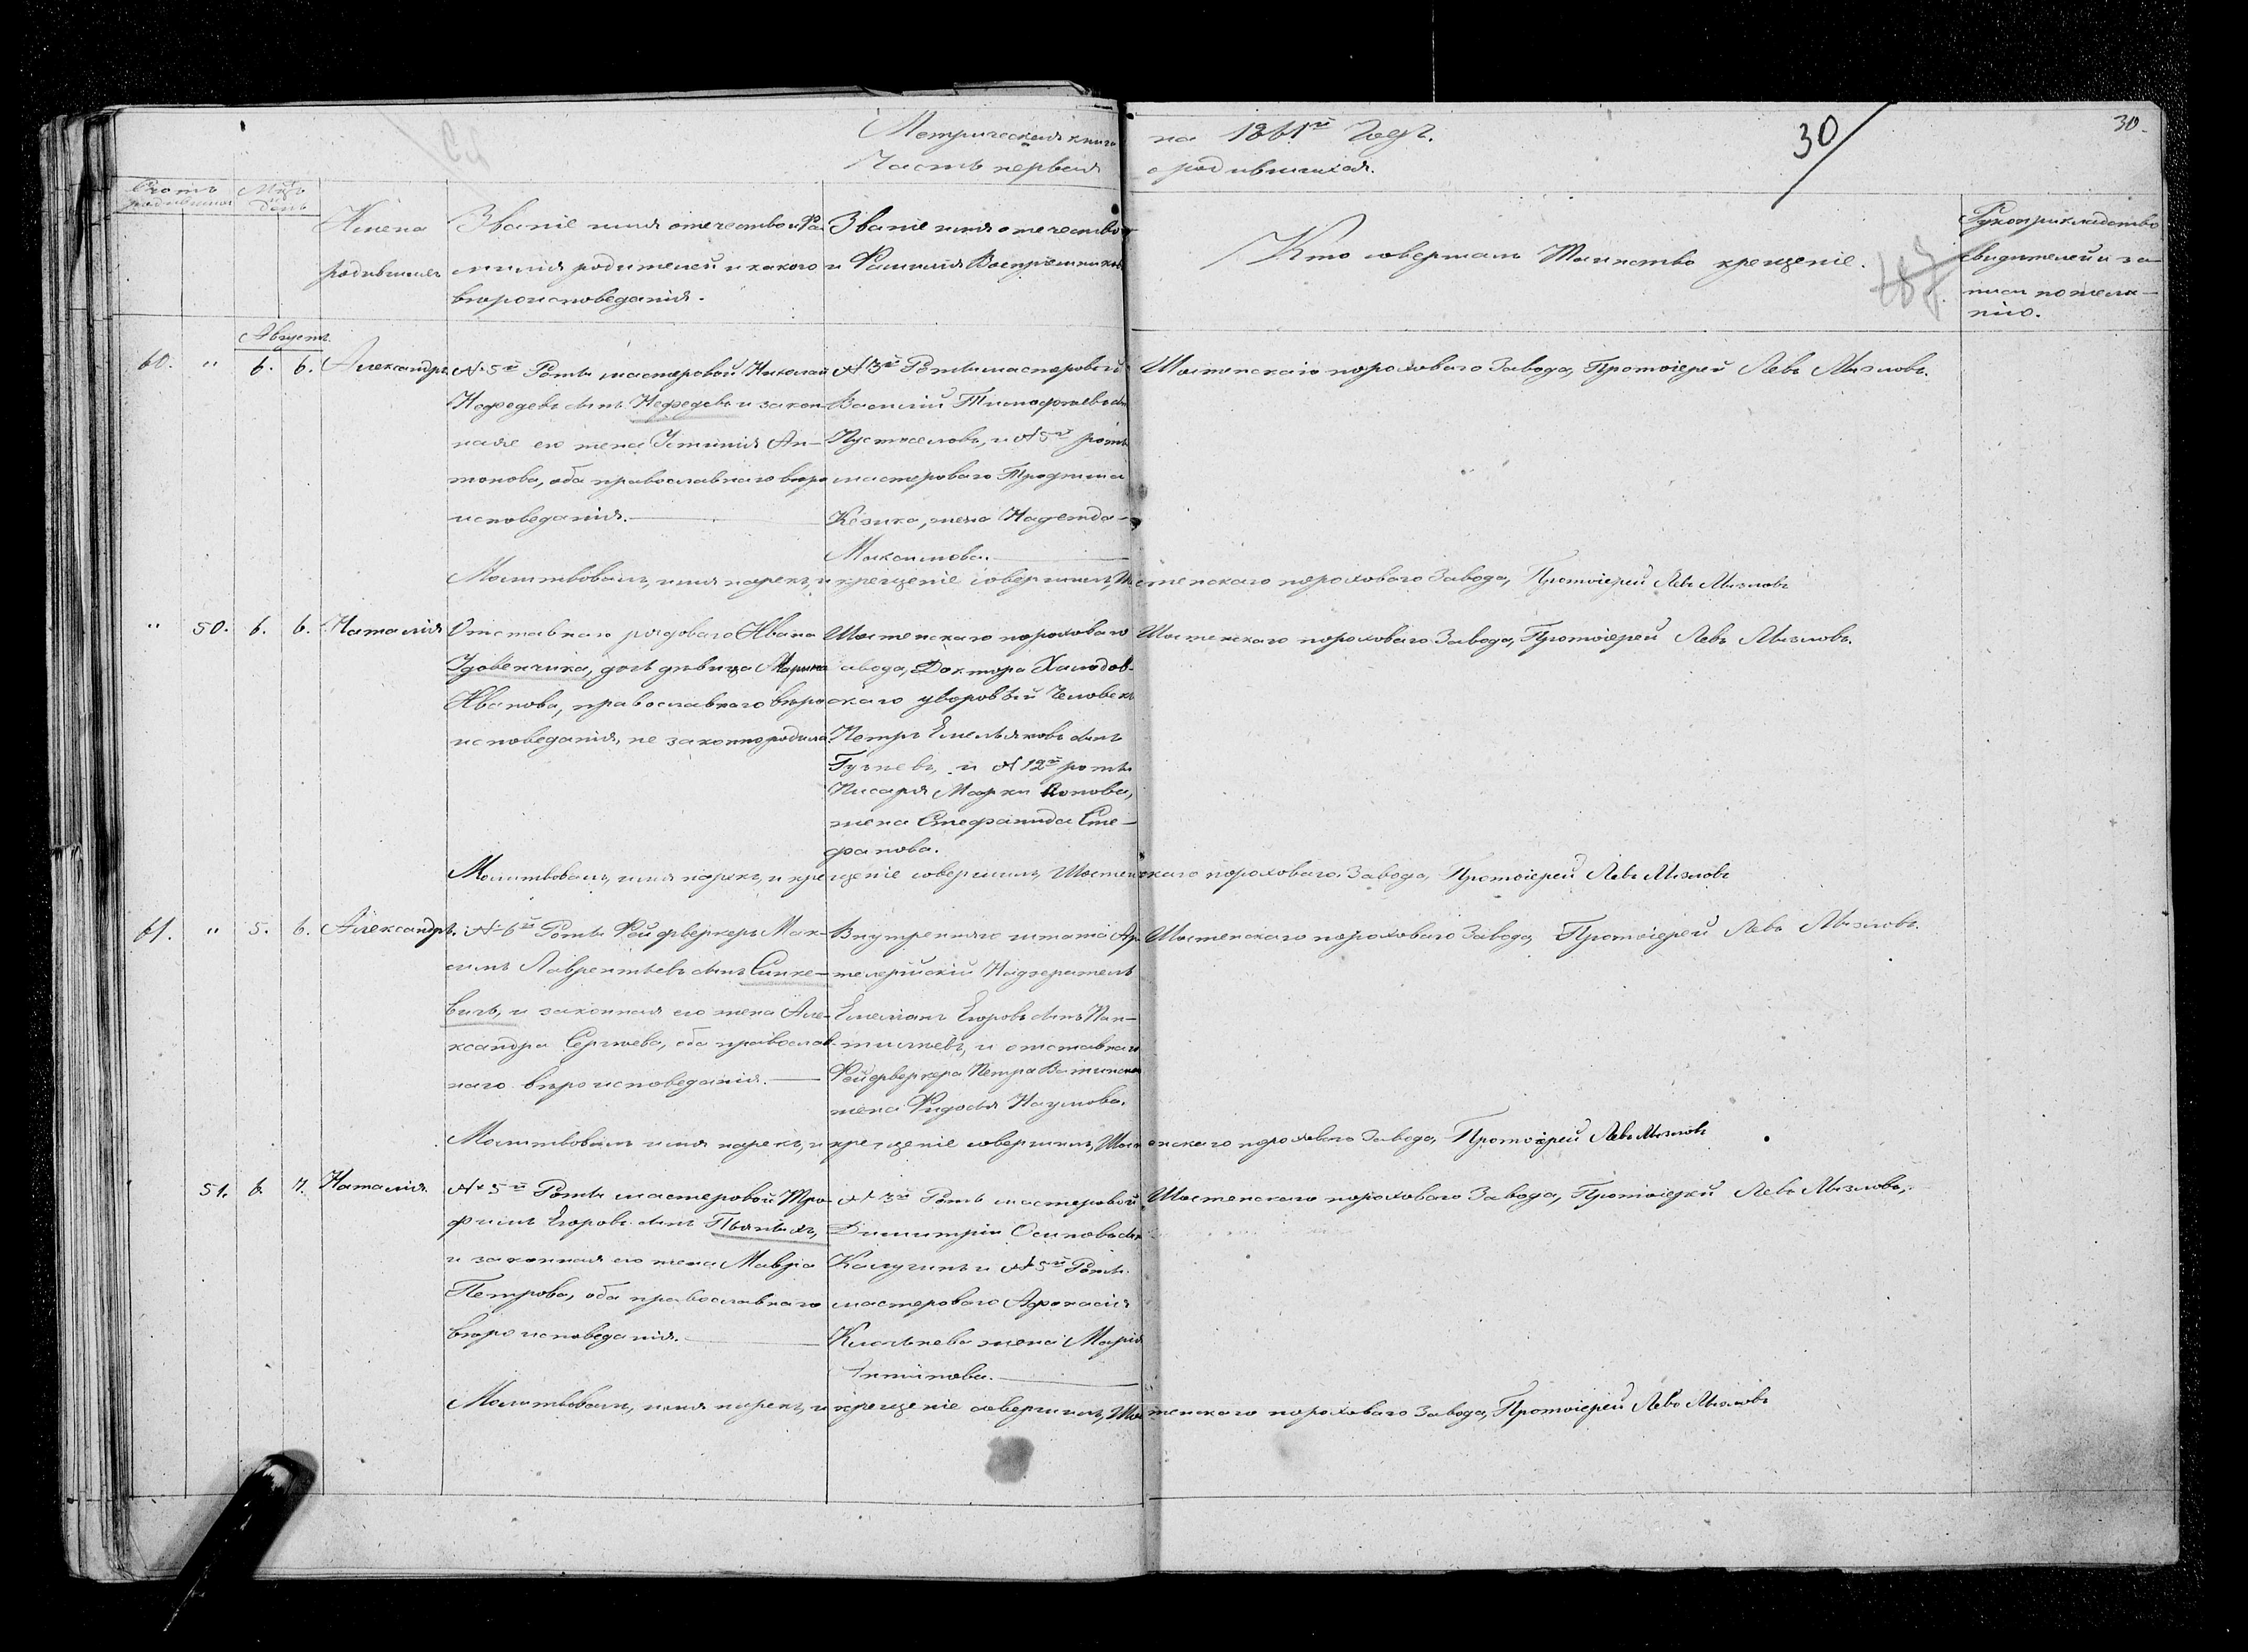 Метрическая книга на 1861й Годъ.
Часть первая о родившихся.
30
30.
Счетъ родившихся
Мѣсяцъ и день
Имена родившихся
Званіе имя отчество и Фамилія родителей и какого вѣроисповеданія.
Званіе имя отчество и Фамилія Воспріемниковъ
Кто совершалъ Таинство крещеніе.
Рукоприкладство свидетелей и записи по желанію.
Августъ
60. " 6. 6. Александръ
№ 5й Роты мастеровой Николай
Нефедевъ сынъ Нефедовъ и закон-
ная его жена Устинія Ан-
тонова, оба православнаго вѣро
исповеданія.
№ 3й Роты мастеровой
Василій Тимофѣевъ сынъ
Пустоселовъ, и № 5й роты
мастероваго Трофима
Козика, жена Надежда
Максимова.
Шостенскаго пороховаго Завода, Протоіерей Левъ Мизловъ.
Молитвовалъ, имя нарекъ, и крещеніе совершилъ, Шостенскаго пороховаго Завода, Протоіерей Левъ Мизловъ
" 50. 6. 6. Наталія
Отставнаго рядоваго Ивана
Удовенчика, дочь девица Марина
Иванова, православнаго вѣро
исповеданія, не законнородила.
Шостенскаго пороховаго
завода, Доктора Халодов-
скаго дворовый Человекъ
Петръ Емельяновъ сынъ
и № 12й роты
Писаря Марки Попова,
жена Стефанида Сте-
фанова.
Шостенскаго пороховаго Завода, Протоіерей Левъ Мизловъ.
Молитвовалъ, имя нарекъ, и крещеніе совершилъ, Шостенскаго пороховаго Завода, Протоіерей Левъ Мизловъ
61. " 5. 6. Александръ.
№ 6й Роты Фейерверкеръ Мак-
симъ Лаврентьевъ сынъ Синке-
вичъ, и законная его жена Але-
ксандра Сергѣева, оба православ-
наго вѣроисповеданія.
Внутренняго штата Ар-
телерійскій Надзератель
Емеліанъ Егоровъ сынъ Пан-
тилѣевъ, и отставнаго
Фейерверкера Петра
жена Федосья Наумова.
Шостенскаго пороховаго Завода, Протоіерей Левъ Мизловъ.
Молитвовалъ имя нарекъ, и крещеніе совершилъ, Шостенскаго пороховаго Завода, Протоіерей Левъ Мизловъ
51. 6. 7. Наталія.
№ 5й Роты мастеровой Тро-
фимъ Егоровъ сынъ Пьяныхъ,
и законная его жена Мавра
Петрова, оба православнаго
вѣроисповеданія.
№ 3й Роты мастеровой
Димитрій Осиповъ сынъ
Калугинъ и № 5й Роты
мастероваго Афонасія
жена Марія
Антипова.
Шостенскаго пороховаго Завода, Протоіерей Левъ Мизловъ.
Молитвовалъ, имя нарекъ, и крещеніе совершилъ, Шостенскаго пороховаго Завода, Протоіерей Левъ Мизловъ